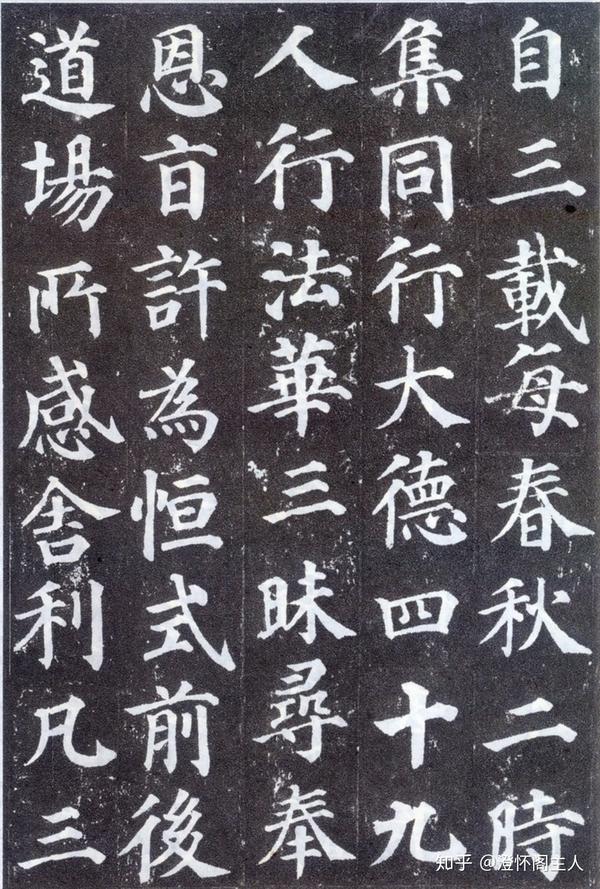 自三載每春秋二時
集同行大德四十九
人行法華三昧尋奉
恩旨許為恒式前後
道場所感舍利凡三
知乎 @澄怀阁主人